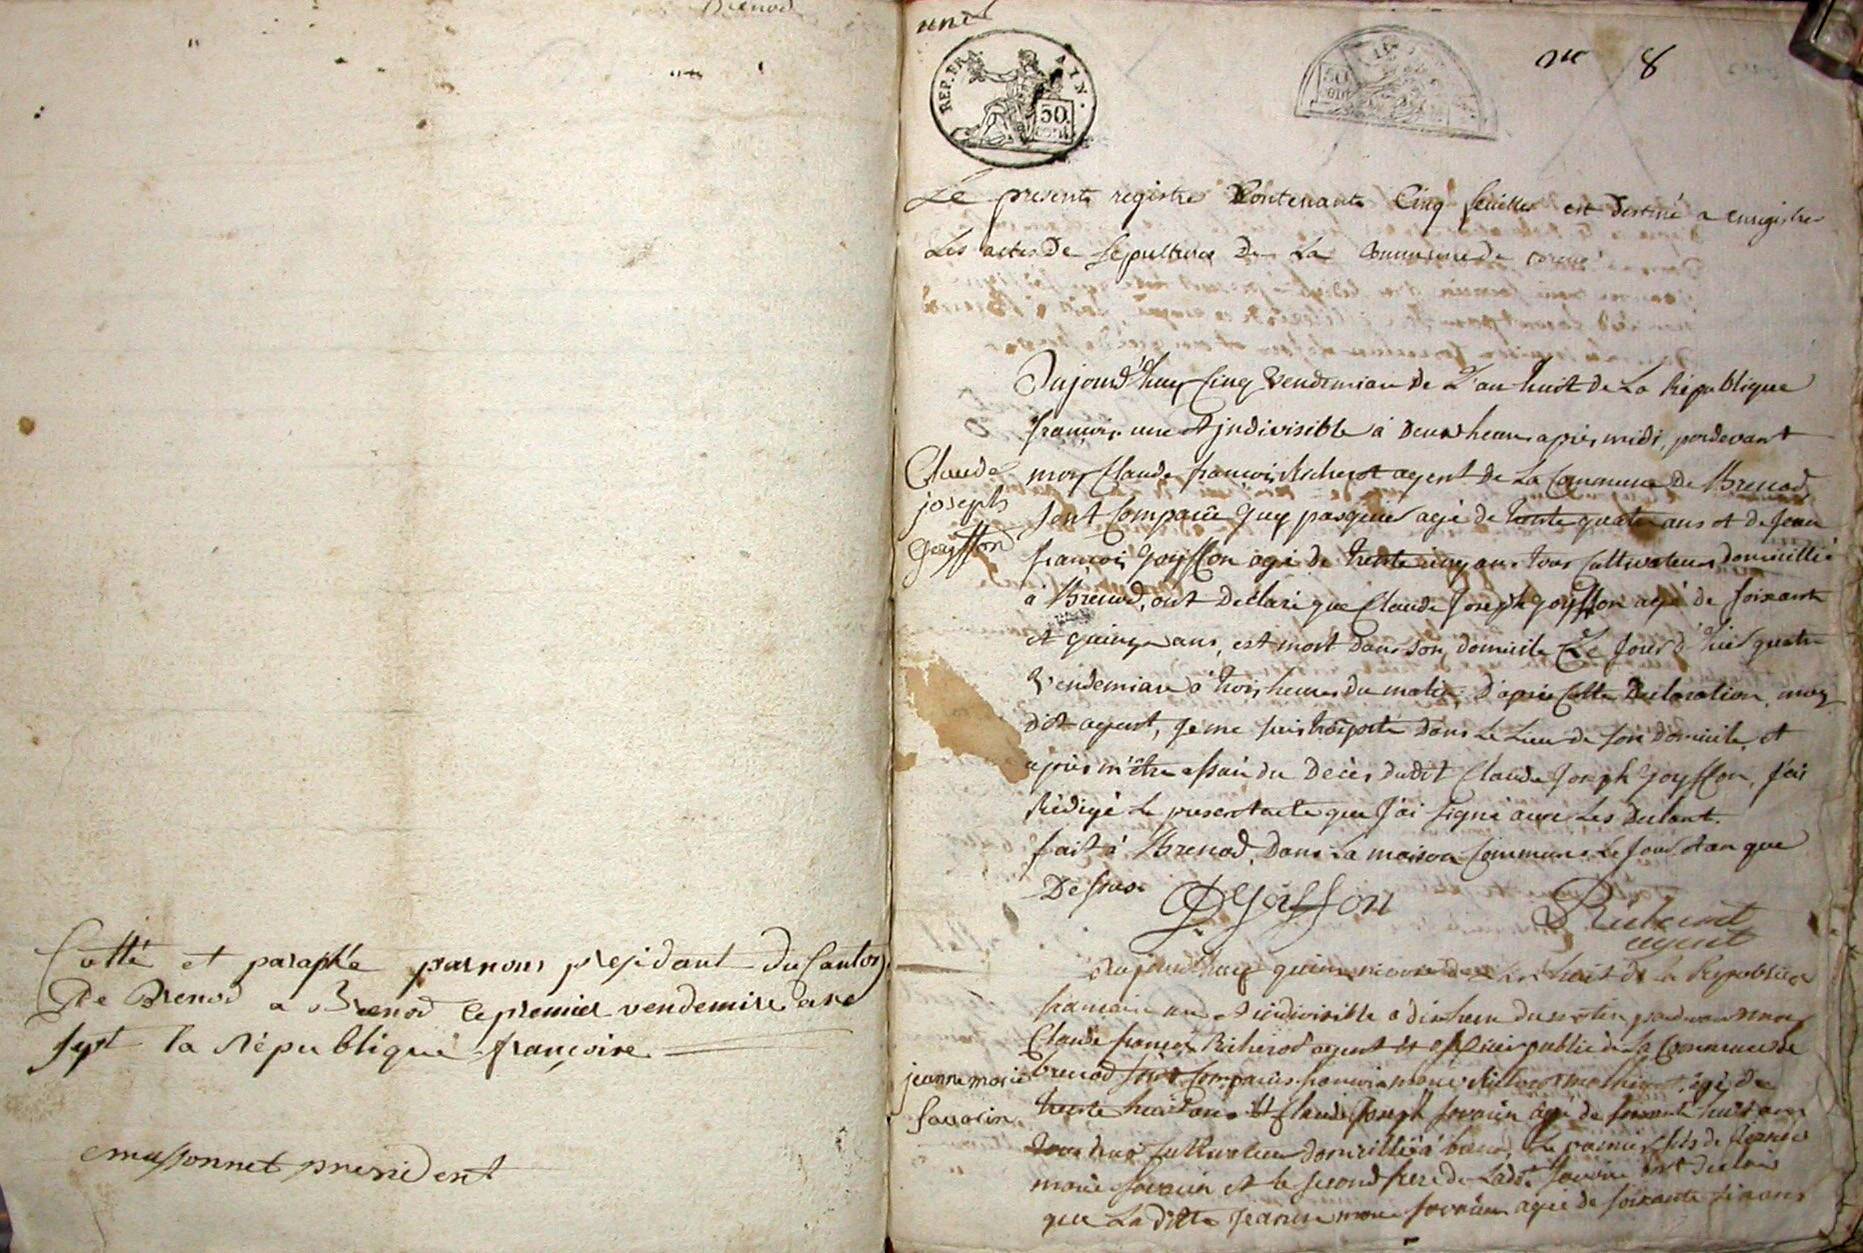 Brenod
Cotté et paraphé par nous president du Canton
De Brenod a Brenod le premier vendemire ane
sept la République françoise
emassonnet president
REP. FRA. AIN.
50. CENT.
an 8
Le present registre Contenant Cinq feuilles est destiné a enregistrer
Les actes De sepulture De La Commune de
Aujourd'huy Cinq Vendemiaire De L'an huit De La République
françoise une et jndivisible à Deux heures après midi, pardevant
Claude joseph Goyffon
moy Claude françois Richerot agent De La Commune De Brenod
sont Comparûe Guy pasquier agé de trente quatre ans et de Jean
françois Goyffon agé De trente cinq ans tous Cultivateurs domicillié
à Brenod, ont Declaré que Claude Joseph Goyffon agé de soixante
et quinze ans, est mort Dans son domicile Le Jour d'hier quatre
Vendemiaire à trois heures Du matin; D'après Cette Declaration, moy
dit agent, Je me suis trasporté Dans Le Lieu de son Domicile, et
après m'être assuré du Decès dudit Claude Joseph Goyffon, J'ai
Rédigé Le present acte que J'ai signé avec Les Declarant.
fait à Brenod, Dans La maison Commune Le Jour et an que
Dessus.
Goiffon
Richerot
agent
Aujourd'huy quinze De L'an huit de la République
francaise une et indivisible a dix heure du matin pardevant moy
Claude françois Richerot agent et officier public de la Commune de
jeanne marie savarin
brenod sont Comparûs francois marie agé De
trente huit ans Et Claude Joseph savarin agé de soixante huit ans
tous Deux Cultivateur domicillié à brenod, Le premier fils de Jeanne
marie savarin et le second frere de Ladte savarin ont declaré
que La ditte Jeanne marie savarin agée de soixante six ans